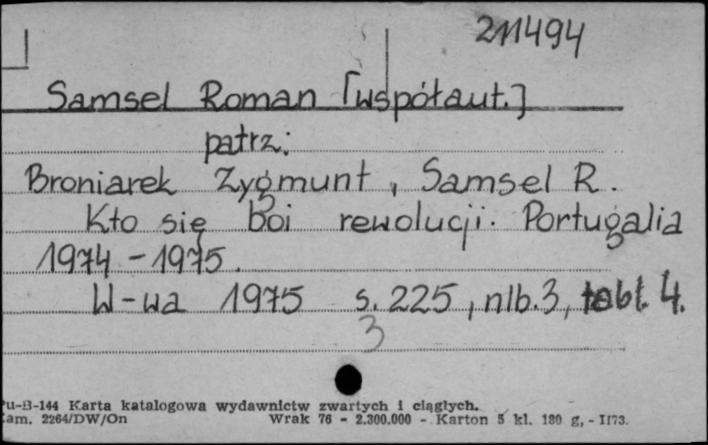 211494
Samsel Roman [współaut.]
patrz:
Broniarek Zygmunt, Samsel R.
Kto się boi rewolucji. Portugalia
1974-1975.
W-wa 1975 s. 225, nlb. 3, tabl. 4.
3
Pu-B-144 Karta katalogowa wydawnictw zwartych i ciągłych.
Zam. 2264/DW/On Wrak 76 - 2.300.000 - Karton 5 kl. 180 g, - II73.